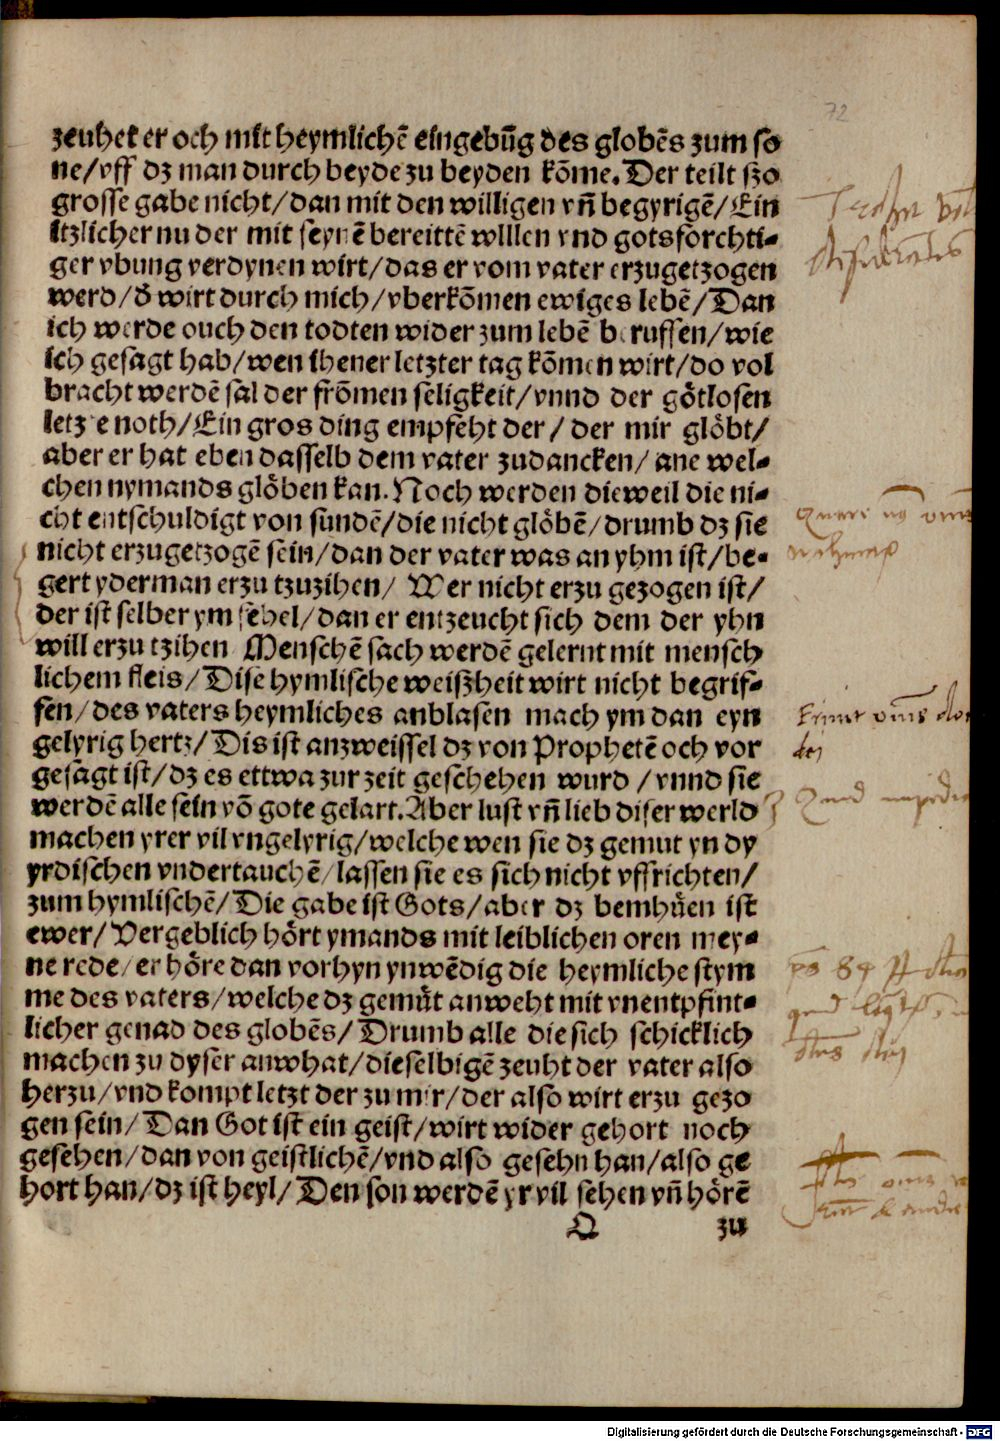 72
zeuhet er och mit heymlichē eingebūg des globēs zum so
ne/vff dz man durch beyde zu beyden kōme. Der teilt szo
grosse gabe nicht/dan mit den willigen vn̄ begyrigē/Ein
itzlicher nu der mit seynē bereittē willen vnd gotsforchti-
ger vbung verdynen wirt/das er vom vater erzugetzogen
werd/d̄ wirt durch mich/vberkōmen ewiges lebē/Dan
ich werde ouch den todten wider zum lebē beruffen/wie
ich gesagt hab/wen ihener letzter tag kōmen wirt/do vol
bracht werdē sal der frōmen seligkeit/vnnd der götlosen
letzte noth/Ein gros ding empfeht der/der mir glöbt/
aber er hat eben dasselb dem vater zudancken/ane wel-
chen nymands glöben kan. Noch werden dieweil die ni-
cht entschuldigt von sundē/die nicht glöbē/drumb dz sie
nicht erzugetzogē sein/dan der vater was an yhm ist/be-
gert yderman erzu tzuzihen/ Wer nicht erzu gezogen ist/
der ist selber ym fehel/dan er entzeucht sich dem der yhn
will erzu tzihen Menschē sach werdē gelernt mit mensch
lichem fleis/Dise hymlische weißheit wirt nicht begrif-
fen/des vaters heymliches anblasen mach ym dan eyn
gelyrig hertz/Dis ist anzweiffel dz von Prophetē och vor
gesagt ist/dz es ettwa zur zeit geschehen wurd /vnnd sie
werdē alle sein vō gote gelart. Aber lust vn̄ lieb diser werld
machen yrer vil vngelyrig/welche wen sie dz gemut yn dy
yrdischen vndertauchē/lassen sie es sich nicht vffrichten/
zum hymlischē/Die gabe ist Gots/aber dz bemhüen ist
ewer/Vergeblich hört ymands mit leiblichen oren mey-
ne rede/er höre dan vorhyn ynwēdig die heymliche stym
me des vaters/welche dz gemüt anweht mit vnentpfint-
licher genad des globēs/Drumb alle die sich schicklich
machen zu dyser anwhat/dieselbigē zeuht der vater also
herzu/vnd kompt letzt der zu mir/der also wirt erzu gezo
gen sein/Dan Got ist ein geist/wirt wider gehort noch
gesehen/dan von geistlichē/vnd also gesehn han/also ge
hort han/dz ist heyl/Den son werdē yr vil sehen vn̄ hörē
Q zu
ps 84
Digitalisierung gefördert durch die Deutsche Forschungsgemeinschaft - DFG